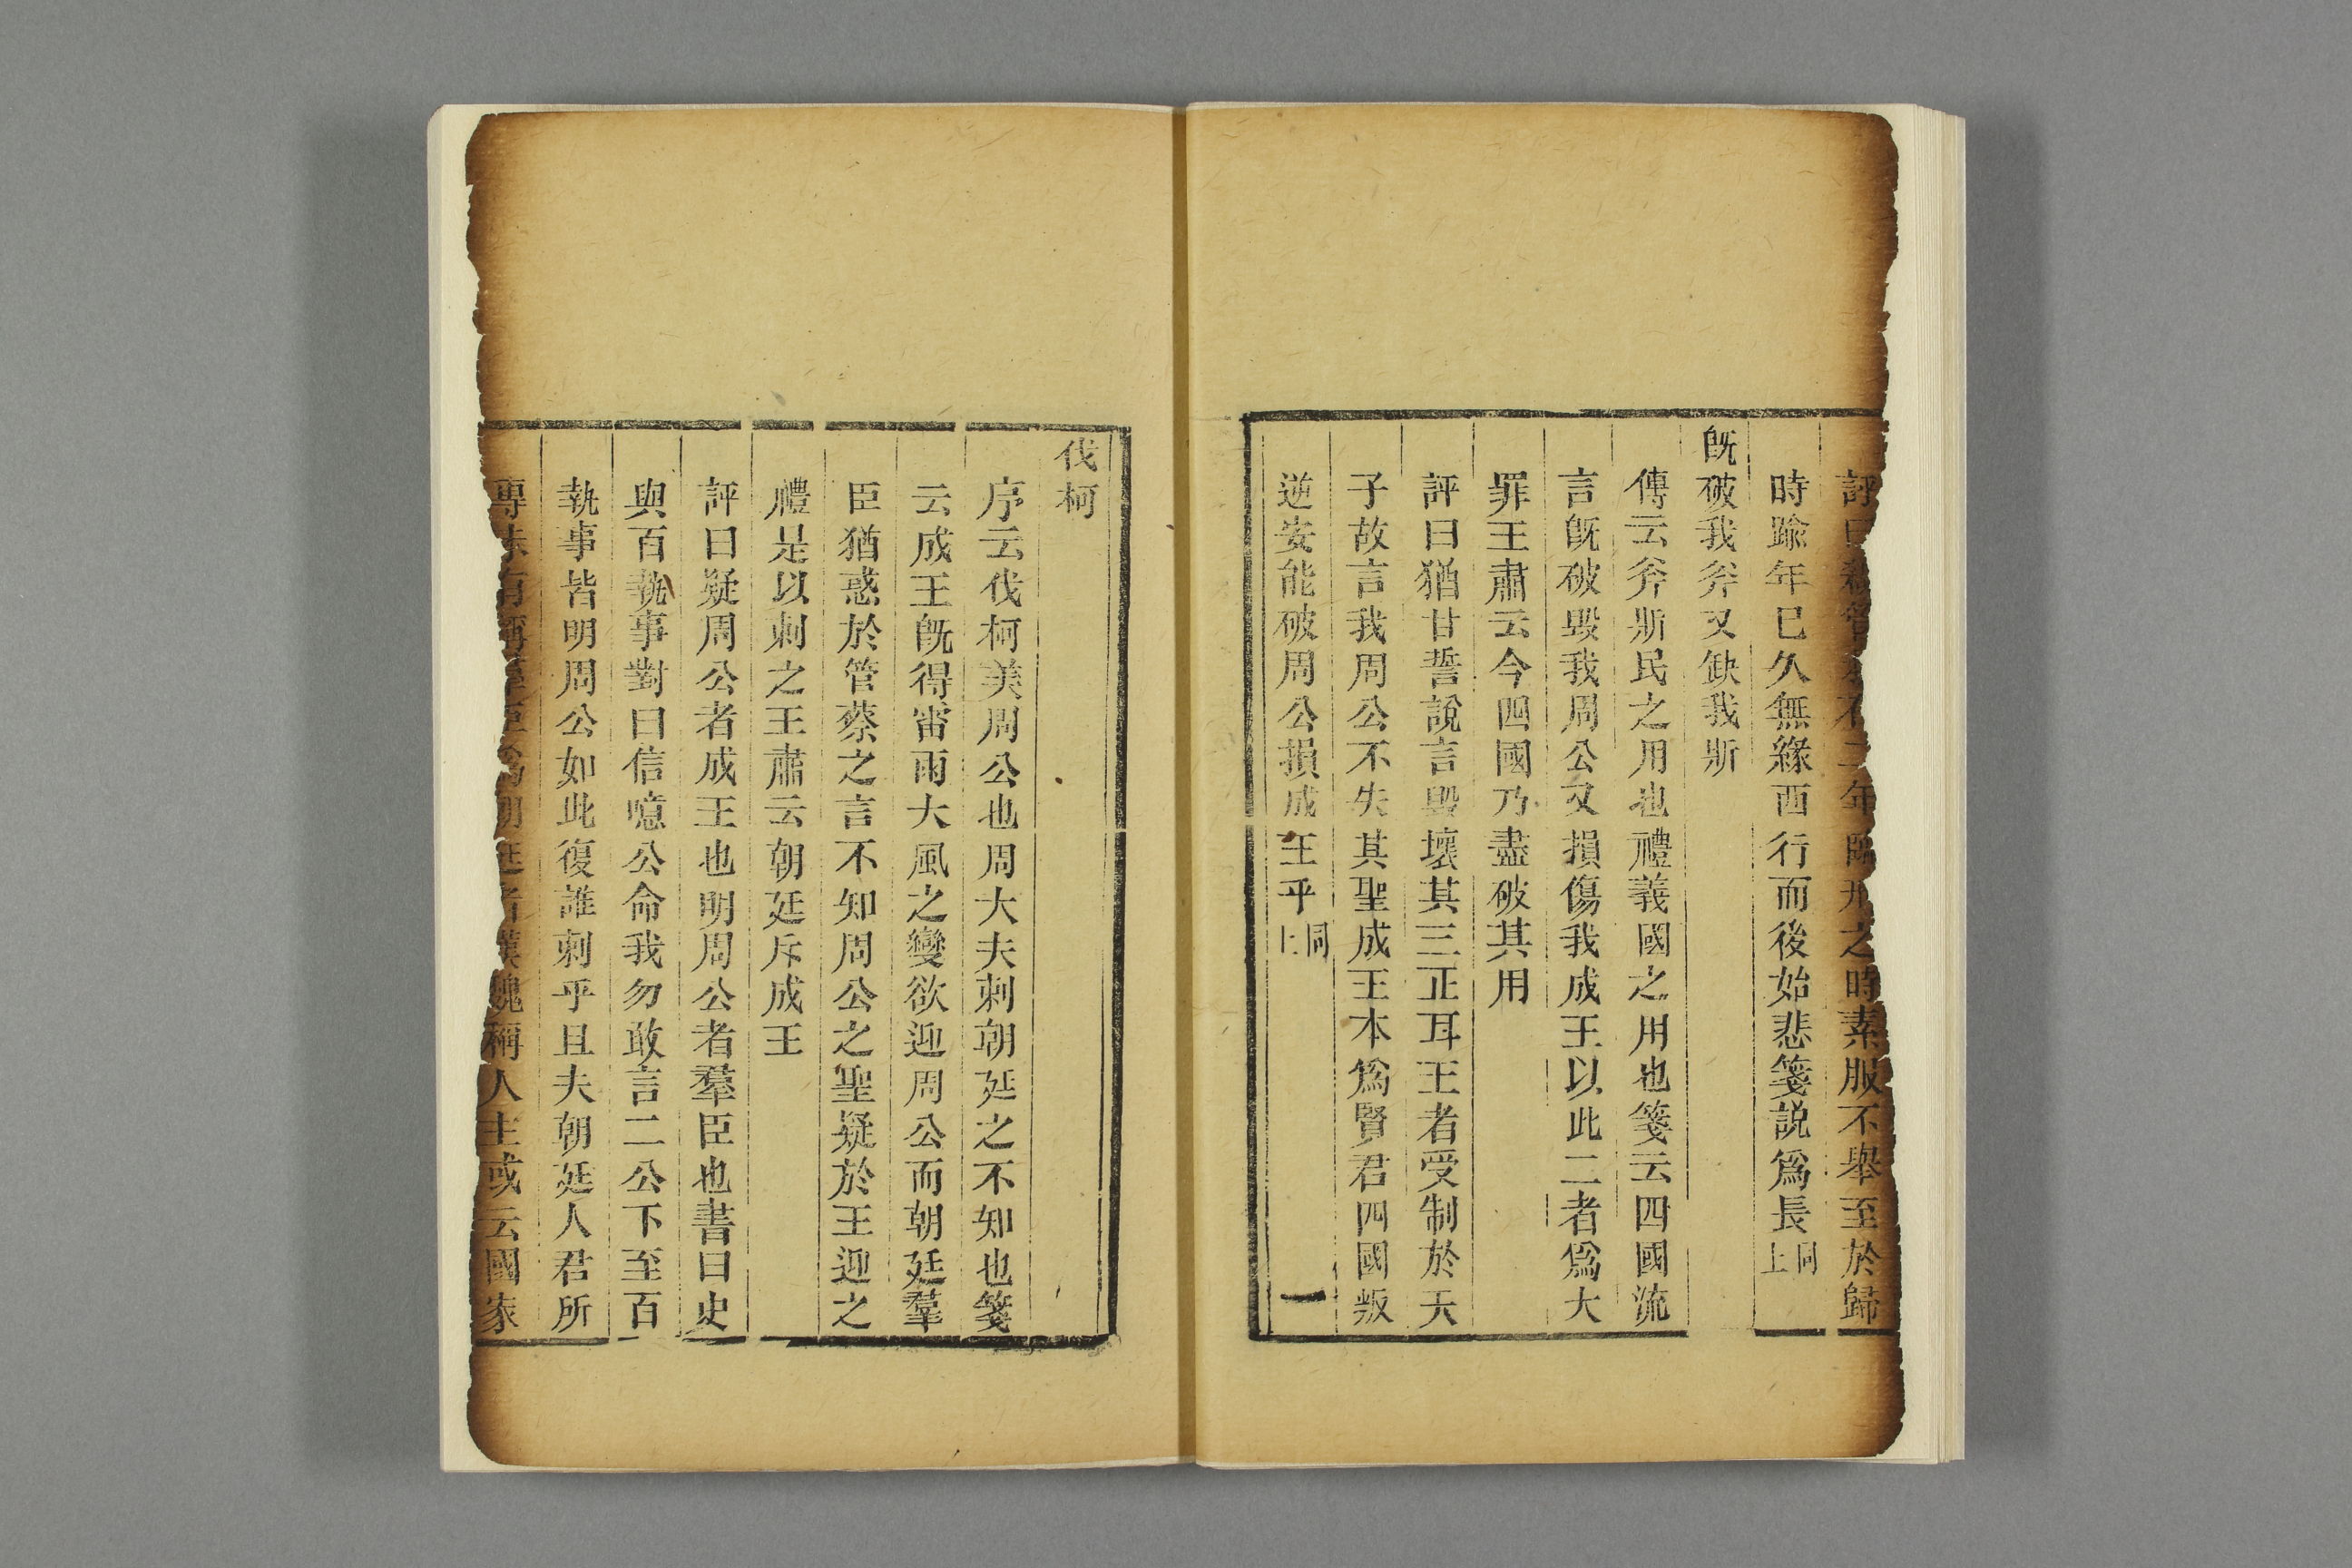 評曰 年 之時素服不舉至於歸
時踰年已久無緣西行而後始悲箋説爲長同上
旣破我斧又缺我斨
傳云斧斨民之用也禮義國之用也箋云四國流
言旣破毀我周公又損傷我成王以此二者爲大
罪王肅云今四國乃盡破其用
評曰猶甘誓說言毀壞其三正耳王者受制於天
子故言我周公不失其聖成王本爲賢君四國叛
逆安能破周公損成王乎同上 一
伐柯
序云伐柯美周公也周大夫刺朝廷之不知也箋
云成王旣得雷雨大風之變欲迎周公而朝廷羣
臣猶惑於管蔡之言不知周公之聖疑於王迎之
禮是以刺之王肅云朝廷斥成王
評曰疑周公者成王也明周公者羣臣也書曰史
與百執事對曰信噫公命我勿敢言二公下至百
執事皆明周公如此復誰刺乎且夫朝廷人君所
專未有稱羣臣爲朝廷者漢魏稱人主或云國家